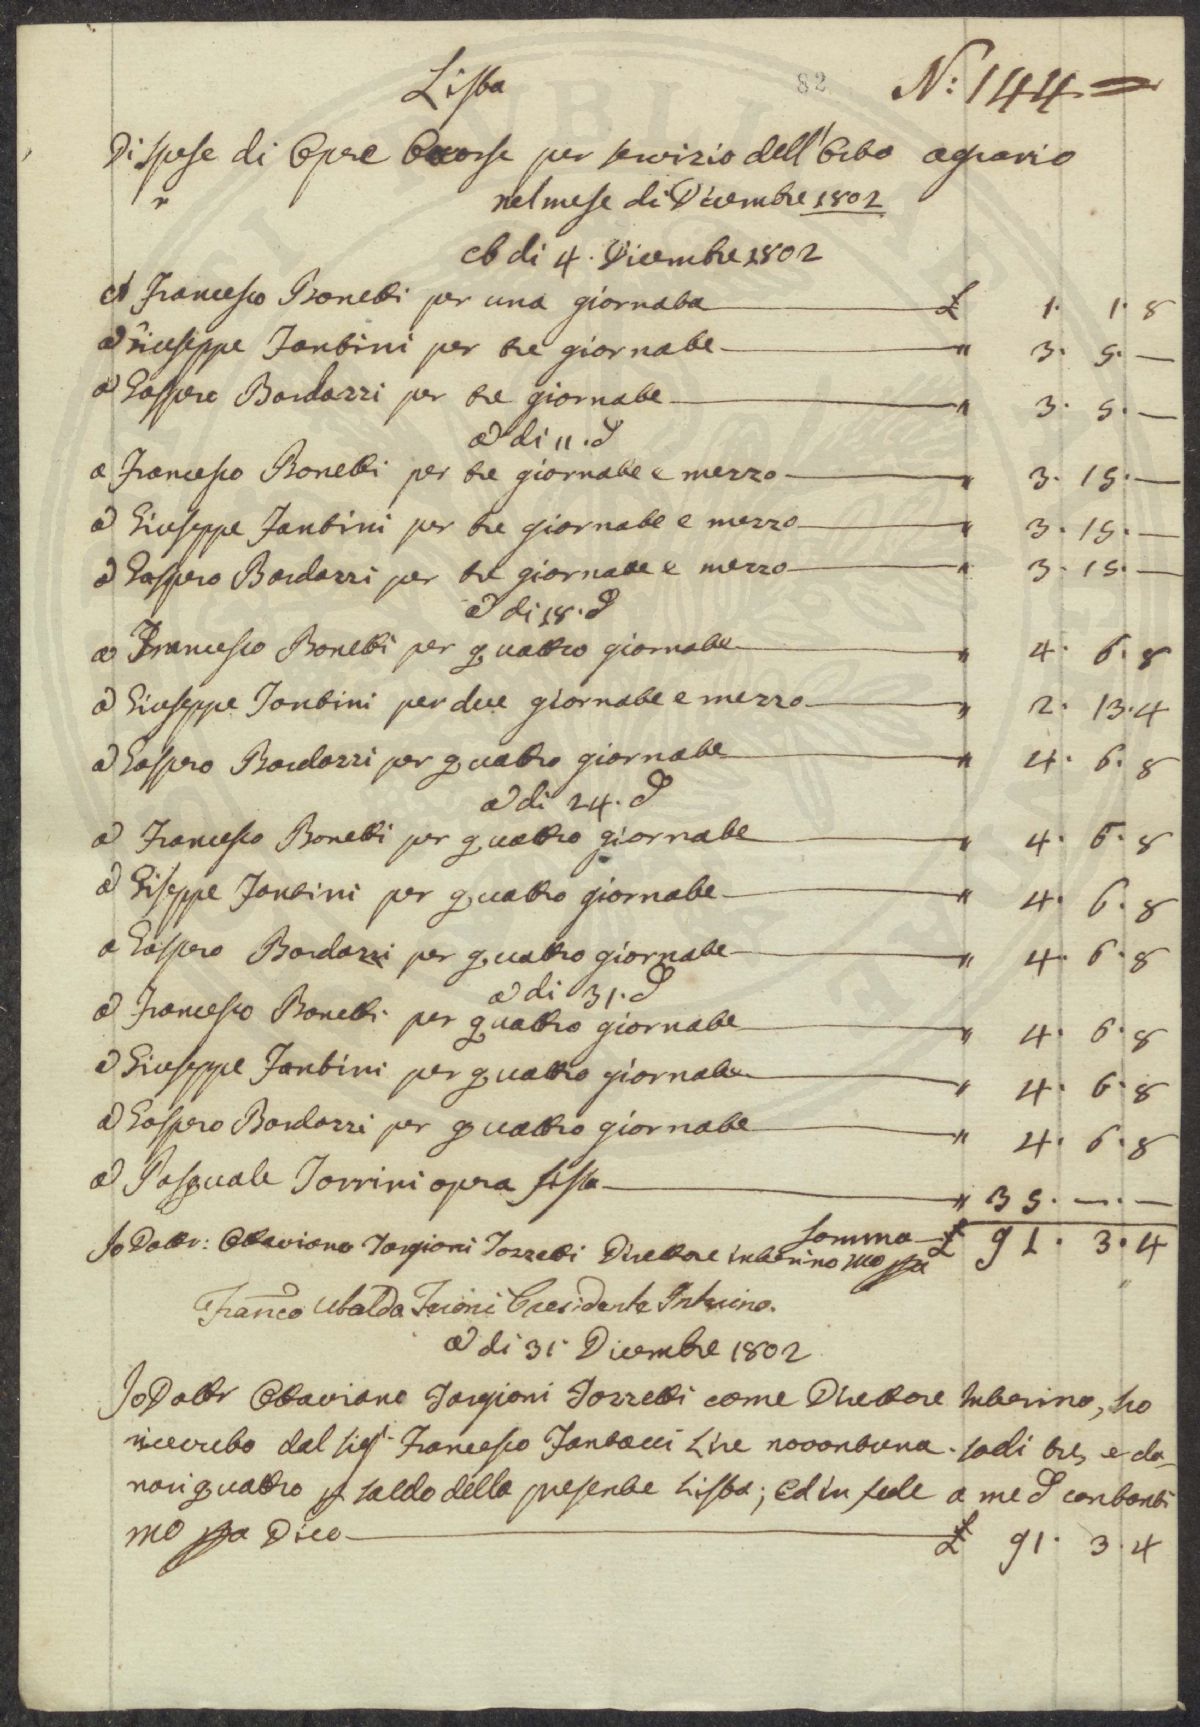 Lista
82
N: 144
Di spese di Opre Occorse per servizio dell'Orto agrario
nel mese di Dicembre 1802
A di 4. Dicembre 1802
A Francesco Bonetti per una giornata £ 1. 1. 8
a Giuseppe Fantini per tre giornate " 3. 5. —
a Gaspero Bardazzi per tre giornate " 3. 5. —
a di 11. d
a Francesco Bonetti per tre giornate e mezzo " 3. 15. —
a Giuseppe Fantini per tre giornate e mezzo " 3. 15. —
a Gaspero Bardazzi per tre giornate e mezzo " 3. 15. —
a di 18. d
a Francesco Bonetti per quattro giornate " 4. 6. 8
a Giuseppe Fantini per due giornate e mezzo " 2. 13. 4
a Gaspero Bardazzi per quattro giornate " 4. 6. 8
a di 24. d
a Francesco Bonetti per quattro giornate " 4. 6. 8
a Giseppe Fantini per quattro giornate " 4. 6. 8
a Gaspero Bardazzi per quattro giornate " 4. 6. 8
a di 31. d
a Francesco Bonetti per quattro giornate " 4. 6. 8
a Giuseppe Fantini per quattro giornate " 4. 6. 8
a Gaspero Bardazzi per quattro giornate " 4. 6. 8
a Pasquale Torrini opra fissa " 35. — . —
Somma £ 91. 3. 4
Io Dottr: Ottaviano Targioni Tozzetti Direttore interino mo ppa
Franco Ubalda Presidente Interino.
a di 31 Dicembre 1802
Io Dottr Ottaviano Targioni Tozzetti come Direttore Interino, ho
ricevuto dal Sigr Francesco Fantacci Lire novantuna. soldi tre, e da-
nari quattro p saldo della presente Lista; ed in fede a me d contanti
mo ppa Dico £ 91. 3. 4